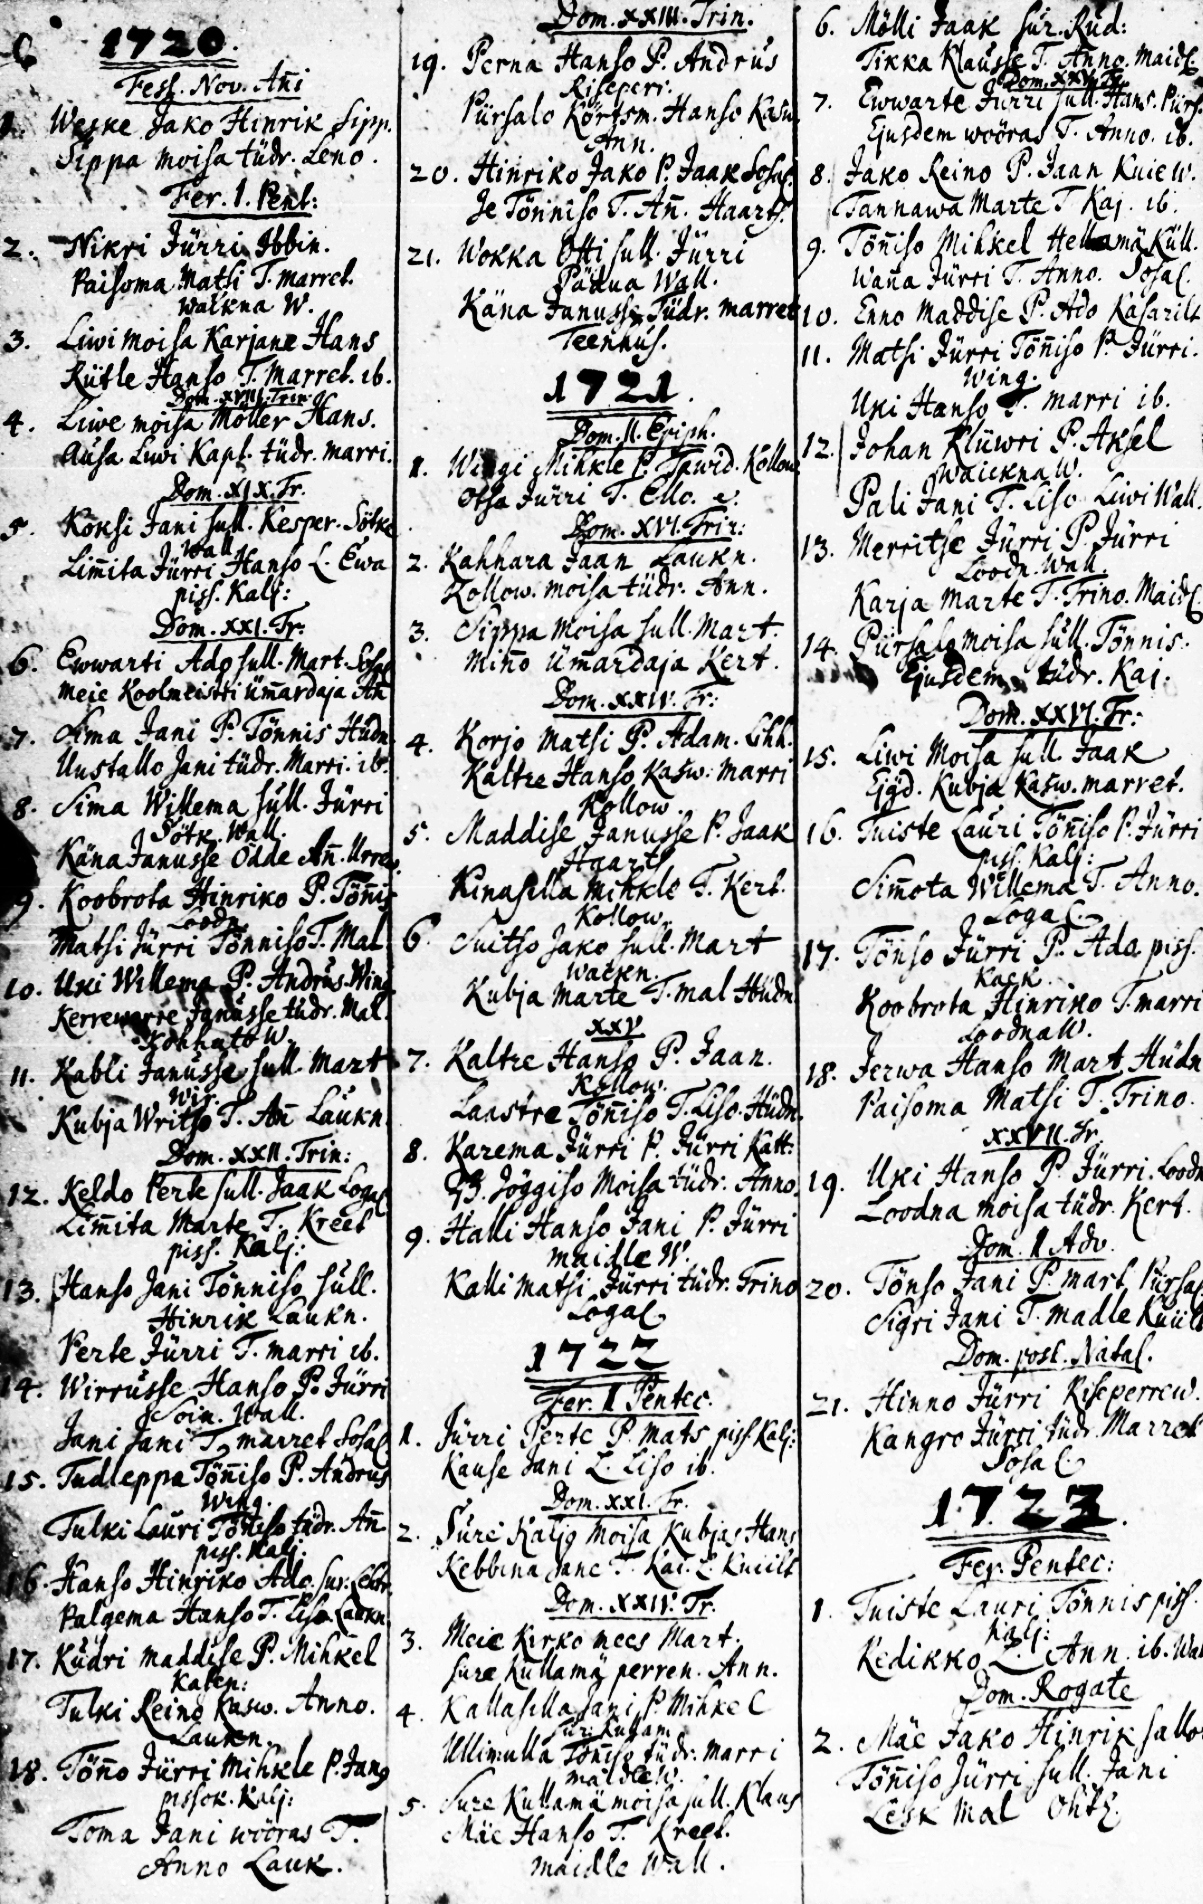 1720.
Fest. Nov. Añi
1. Weske Jako Hinrik Sipp.
Sippa moisa tüdr. Leno.
Fer. 1. Pent:
2. Nikri Jürri Ibbin.
Paisoma Matsi T. marret.
walkna W.
3. Liwi moisa Karjane Hans
Rütle Hanso T. Marret. ib.
Dom. XVIII. Trin
4. Liwe moisa Möller Hans.
Ausa Liwi Kapt. tüdr. marri.
Dom. XIX. Tr.
5. Koksi Jani sull. Kesper. Sötke
Wall
Lim̄ita Jürri Hanso L. Ewa
piss. Kalj:
Dom. XXI. Tr:
6. Ewwarti Ado sull. Mart. Sosal
meie Koolmeistri üm̄ardaja An̄
7. Sima Jani P. Tönnis Hüdn
Uustallo Jani tüdr. Marri. ib.
8. Sima Willema sull. Jürri
Sötk. Wall.
Käna Janusse Odde An̄.
9. Koobrota Hinriko P. Tön̄is
Loodn
Matsi Jürri Tönniso T. Mal
10. Uki Willema P. Andrus Wing
Kerrewerre Janusse tüdr. Mal.
Kohhato W.
11. Kabli Janusse sull. Mart
Wir.
Kubja Writso T. An̄ Laukn.
Dom. XXII. Trin:
12. Keldo Perte sull. Jaak Logal
Lim̄ita Marte T. Kreet
piss. Kalj:
13. Hanso Jani Tönniso sull.
Hinrik Laukn.
Perte Jürri T. marri ib.
14. Wirrusse Hanso P. Jürri
Soin. Wall.
Jani Jani T. marret Sosal
15. Tudleppa Tön̄iso P. Andrus
Wing.
Tulki Lauri Tön̄iso tüdr. An̄
piss. Kalj:
16. Hanso Hinriko Ado. sur.
Palgema Hanso T. Liso Laukn.
17. Küdri maddise P. Mihkel
Kaben:
Tulki Reino Kasw. Anno.
Laukn.
18. Tön̄o Jürri Mihkle P. Jang
pissok. Kalj:
Toma Jani wöoras T.
Anno Lauk.
Dom. XXIII. Trin.
19. Perna Hanso P. Andrus
Riseperi.
Pürsalo Körtsm. Hanso Kasw.
Ann.
20. Hinriko Jako P. Jaak Sosal.
Je Tönniso T. An̄. Haarts.
21. Wokka Otti sull. Jürri
Pädua Wall.
Käna Janusse Tüdr. marret
Teennus.
1721.
Dom. II. Epiph.
1. Wingi Mihkle P. Tawid. Kollow
Otsa Jürri T. Ello.
Dom. XVI. Trin:
2. Kahhara Jaan Laukn.
Kollow. moisa tüdr. Ann.
3. Sippa moisa sull. Mart.
Min̄o üm̄ardaja Kert.
Dom. XXIV. Tr:
4. Korjo Matsi P. Adam. Lihh.
Kaltre Hanso Kasw: Marri
Kollow.
5. Maddise Janusse P. Jaak
Haarts
Kinasilla Mihkle T. Kert.
Kollow.
6. Suitso Jako sull. Mart
Walkn.
Kubja Marte T. mal Hüdn.
XXV
7. Kaltre Hanso P. Jaan.
Kollow.
Laastre Tön̄iso T. Liso. Hüdn.
8. Karema Jürri P. Jürri Katt:
Jöggiso Moisa tüdr. Anno.
9. Halli Hanso Jani P. Jürri
maidle W.
Kalli Matsi Jürri tüdr. Trino
Logal
1722
Fer. II Pentec.
1. Jürri Perte P. Mats piss. Kalj:
Kause Jani L. Liso ib.
Dom. XXI. Tr.
2. Sure Kaljo moisa Kubjas Hans
Kebbina Jane T. Kai.
Dom. XXIV. Tr.
3. Meie Kirko mees Mart.
Sure Kullamä perren. Ann.
4. Kallasilla Jani P. Mihkel
Sur: Kullam
Ullimulla Tön̄iso tüdr. marri
maidle W.
5. Sure Kullamä moisa sull. Klaus
Mäe Hanso T. Kreet.
maidle Wall.
6. Mölli Jaak sur. Rud:
Tikka Klausse T. Anno. Maidl.
Dom. XXV. Tr.
7. Ewwarte Jürri sull. Hans. Pürs.
Ejusdem wöoras T. Anno. ib.
8. Jako Reino P. Jaan Kuiew.
Tannawa Marte T Kaj. ib.
9. Tön̄iso Mihkel Hellamä Küll.
Wan̄a Jürri T. Anno. Sosal.
10. Enno Maddise P. Ado Kasarilt
11. Matsi Jürri Tön̄iso P. Jürri.
Wing.
Uki Hanso T. marri ib.
12. Johan Klüwri P. Aksel
Waickna W.
Pali Jani T. Liso Liwi Wall.
13. Merritse Jürri P. Jürri
Loodn. Wall.
Karja Marte T. Trino. Maidl
14. Pürsalo moisa sull. Tönnis.
Ejusdem tüdr. Kaj.
Dom. XXVI. Tr:
15. Liwi Moisa sull. Jaak
Ejgd. Kubja Kasw. marret.
16. Tuiste Lauri Tön̄iso P. Jürri
piss. Kalj:
Sim̄ota Willema T. Anno.
Logal.
17. Tönso Jürri P. Ado piss.
Kack.
Koobrota Hinriko T. marri
Loodna W.
18. Jerwa Hanso Mart Hüdn
Paisoma Matsi T. Trino.
XXVII. Tr.
19. Uki Hanso P. Jürri. Loodn
Loodna moisa tüdr. Kert.
Dom. II Adv.
20. Tönso Jani P. mart. Pürsal
Sigri Jani T. madle
Dom. post. Natal.
21. Hinno Jürri Riseperrew.
Kangro Jürri tüdr. Marret
Sosal
1723.
Fer. Pentec:
1. Tuiste Lauri Tönnis piss.
Kalj:
Kedikko L. Ann. ib. Wal
Dom. Rogate
2. Mäe Jako Hinrik sallo
Tön̄iso Jürri sull. Jani
Lesk Mal